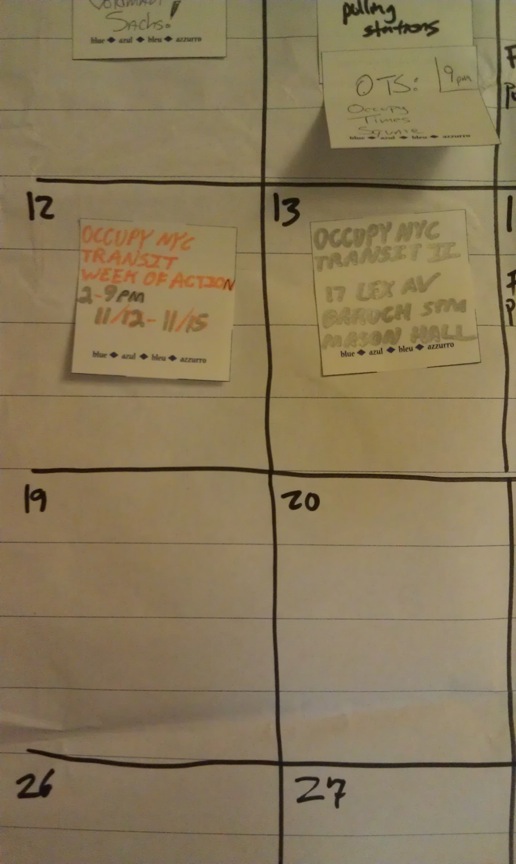 Sachs!
blue ◆ azul ◆ bleu ◆ azzurro
polling
stations
OTS:
9pm
Occupy
Times
Square
blue ◆ azul ◆ bleu ◆ azzurro
12
OCCUPY NYC
TRANSIT
WEEK OF ACTION
2-9PM
11/12 - 11/15
blue ◆ azul ◆ bleu ◆ azzurro
13
OCCUPY NYC
TRANSIT II
17 LEX AV
BARUCH 5PM
MASON HALL
blue ◆ azul ◆ bleu ◆ azzurro
19
20
26
27